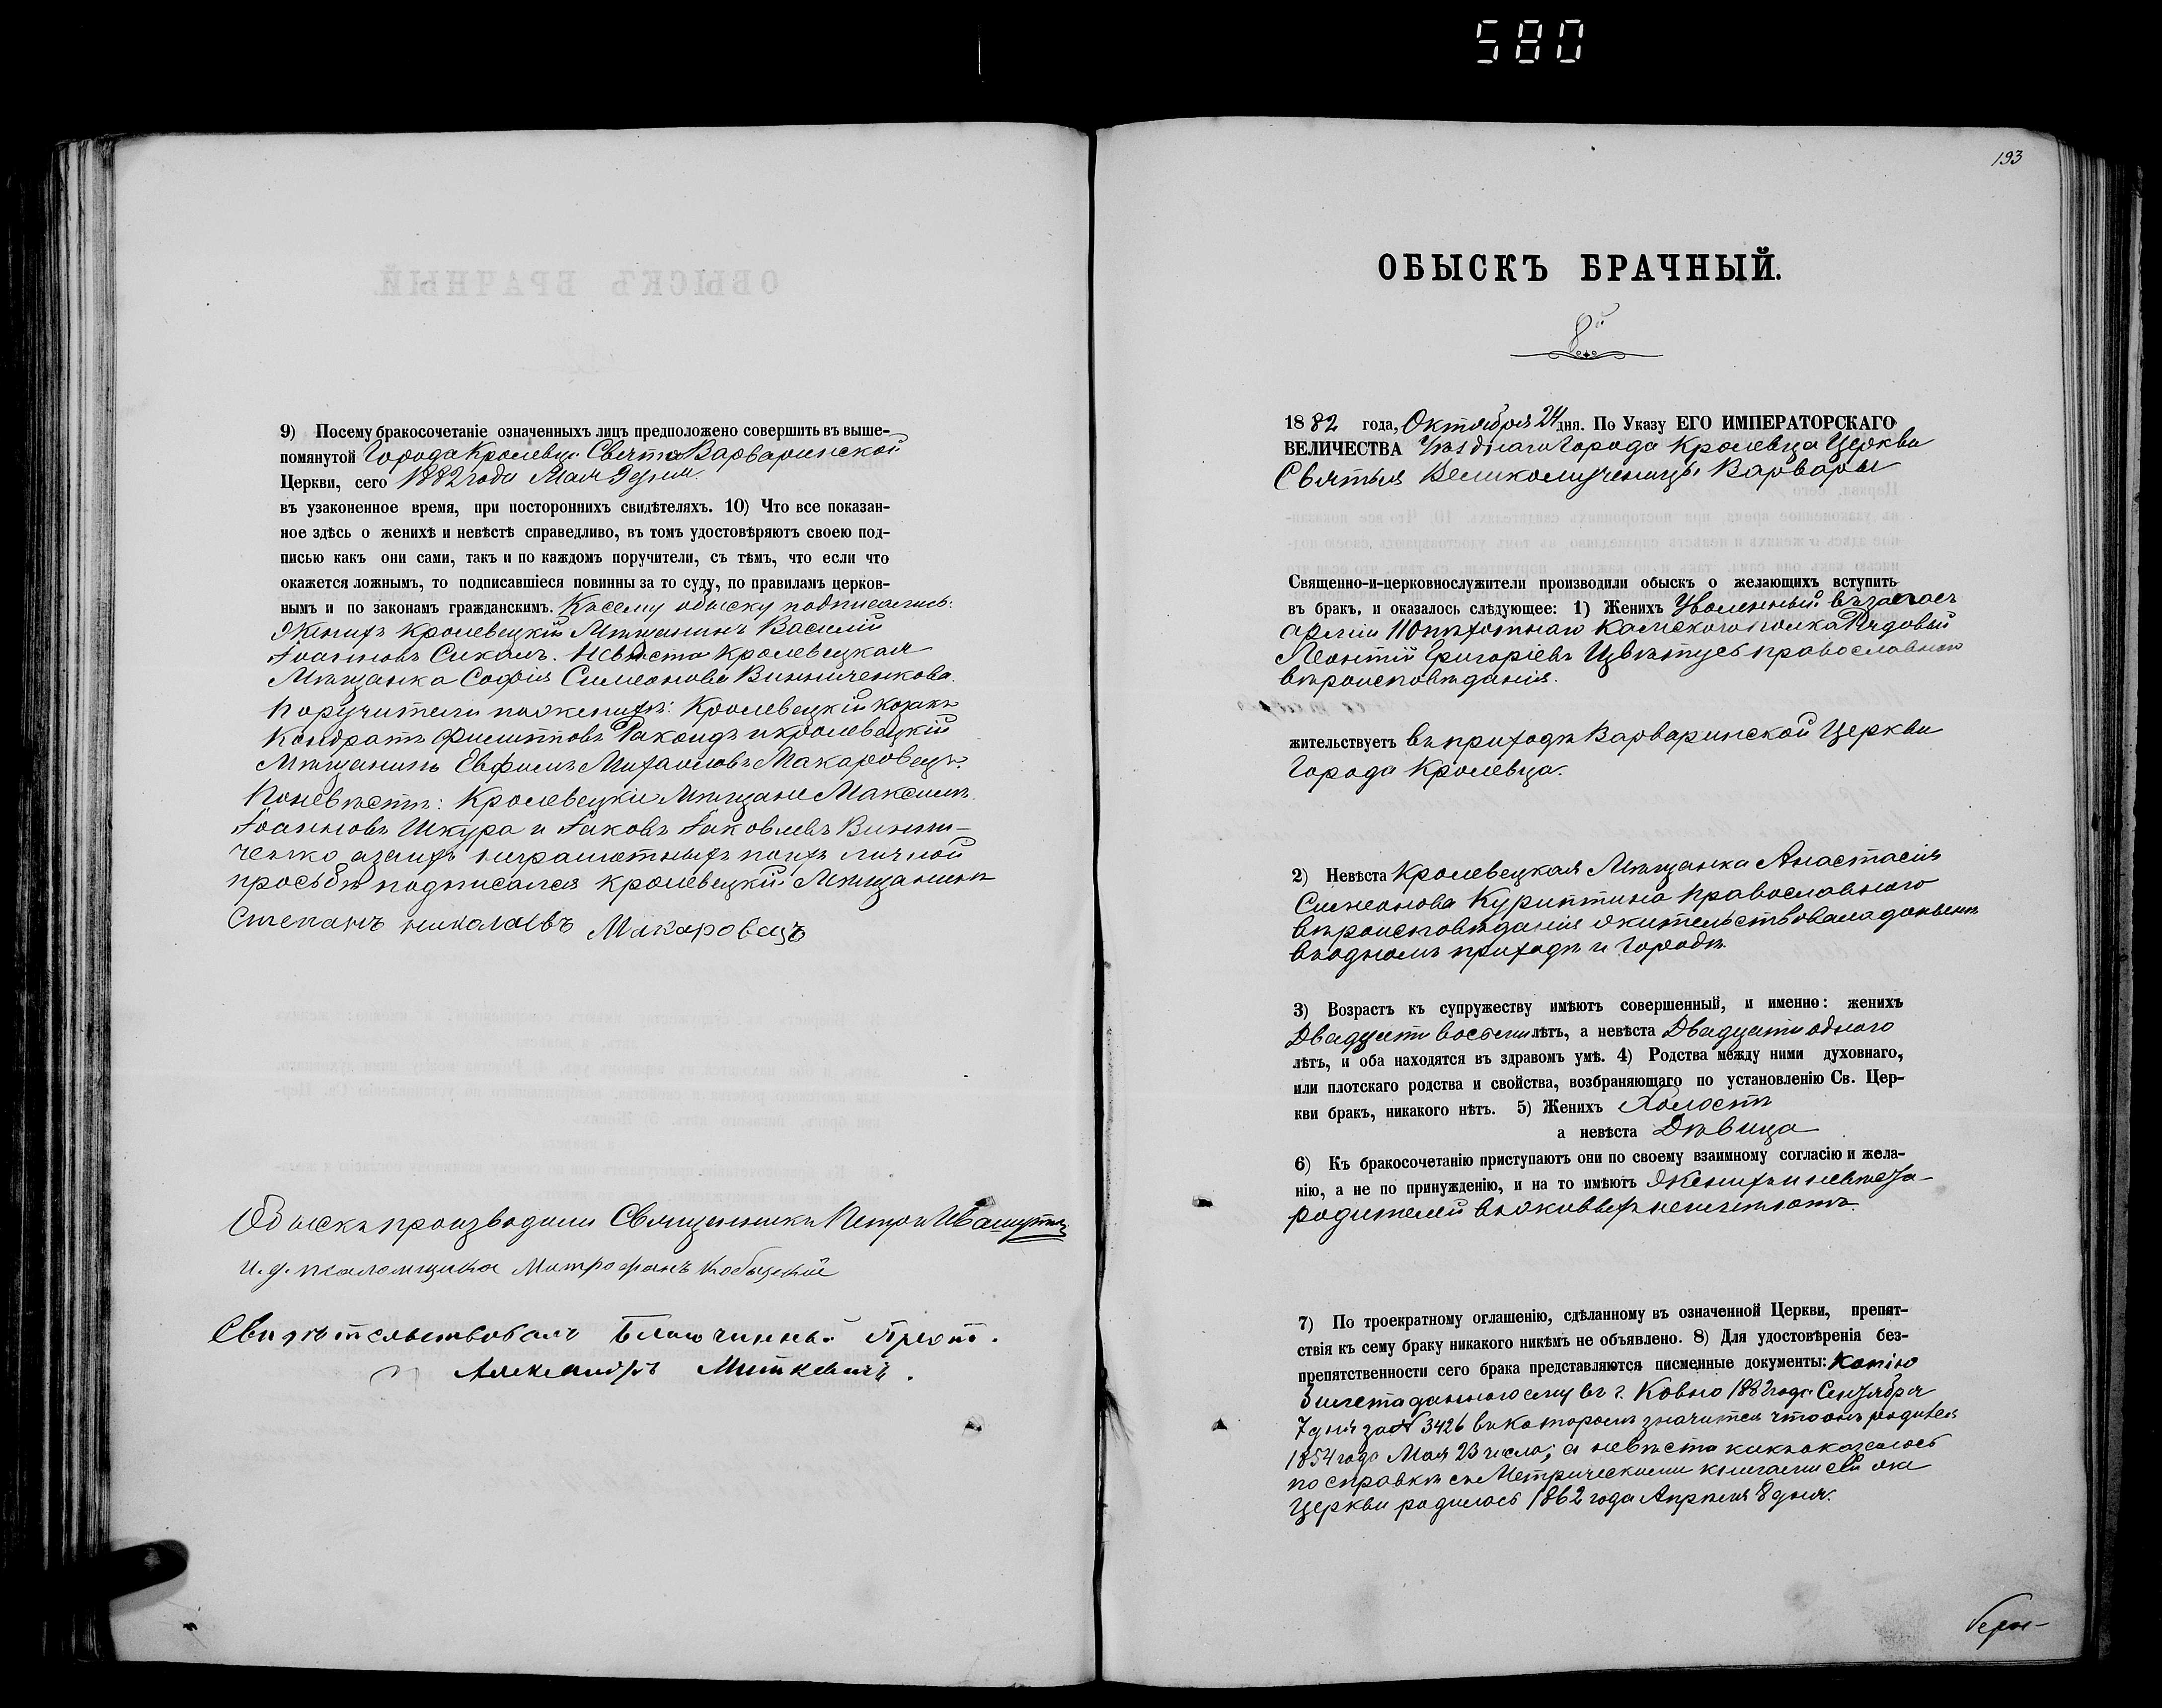 580
9) Посему бракосочетаніе означенныхъ лицъ предположено совершить въ выше-
помянутой Города Кролевца Свято Варваринской
Церкви, сего 1882 года Мая 9 дня.
въ узаконенное время, при постороннихъ свидѣтеляхъ. 10) Что все показан-
ное здѣсь о женихѣ и невѣстѣ справедливо, въ томъ удостовѣряютъ своею под-
писью какъ они сами, такъ и по каждомъ поручители, съ тѣмъ, что если что
окажется ложнымъ, то подписавшіеся повинны за то суду, по правиламъ церков-
нымъ и по законамъ гражданскимъ. Къ сему обыску подписались:
Женихъ Кролевецкій Мѣщанинъ Василій
Іоанновъ Сикалъ. Невѣста Кролевецкая
Мѣщанка Софія Симеонова Винниченкова.
Поручители по женихѣ: Кролевецкій козакъ
Кондратъ Филипповъ и кролевецкій
Мѣщанинъ Евфимъ Михаиловъ Макаровецъ.
По невѣстѣ: Кролевецкіе Мѣщане Максимъ
Іоанновъ Шкура и Іаковъ Іаковлевъ Винни-
ченко а за нихъ неграмотныхъ по ихъ личной
просьбѣ подписался кролевецкій Мѣщанинъ
Степанъ николаевъ Макаровецъ
Обыскъ производили Священникъ Петръ Ивашутичъ
И. д. псаломщика Митрофанъ Кобыцкій
Свидѣтельствовалъ Благочинный Прот.
Александръ Миткевичъ.
193
ОБЫСКЪ БРАЧНЫЙ.
8й
1882 года, Октября 24 дня. По Указу ЕГО ИМПЕРАТОРСКАГО
ВЕЛИЧЕСТВА Уѣзднаго Города Кролевца Церкви
Святыя Великомученицы Варвары
Священно-и-церковнослужители производили обыскъ о желающихъ вступить
въ бракъ, и оказалось слѣдующее: 1) Женихъ Уволенный въ запасъ
арміи 110 пѣхотнаго Камскаго полка Рядовый
Леонтій Григоріевъ православнаго
вѣроисповѣданія.
жительствуетъ въ приходѣ Варваринской Церкви
Города Кролевца.
2) Невѣста Кролевецкая Мѣщанка Анастасія
Симеонова Православнаго
вѣроисповѣданія жительствовала донынѣ
въ одномъ приходѣ и городѣ.
3) Возрастъ къ супружеству имѣютъ совершенный, и именно: женихъ
Двадцати восьми лѣтъ, а невѣста Двадцати одного
лѣтъ, и оба находятся въ здравомъ умѣ. 4) Родства между ними духовнаго,
или плотскаго родства и свойства, возбраняющаго по установленію Св. Цер-
кви бракъ, никакого нѣтъ. 5) Женихъ Холостъ
а невѣста Дѣвица
6) Къ бракосочетанію приступаютъ они по своему взаимному согласію и жела-
нію, а не по принужденію, и на то имѣютъ Женихъ и невѣста
родителей въ живыхъ не имѣютъ.
7) По троекратному оглашенію, сдѣланному въ означенной Церкви, препят-
ствія къ сему браку никакого никѣмъ не объявлено. 8) Для удостовѣренія без-
препятственности сего брака представляются писменные документы: копію
билета даннаго ему въ г. Ковно 1882 года Сентября
7 дня за № 3426 въ которомъ значится что онъ родился
1854 года Мая 23 числа; а невѣста какъ оказалось
по справкѣ съ Метрическими книгами сей же
Церкви родилась 1862 года Апрѣля 8 дня.